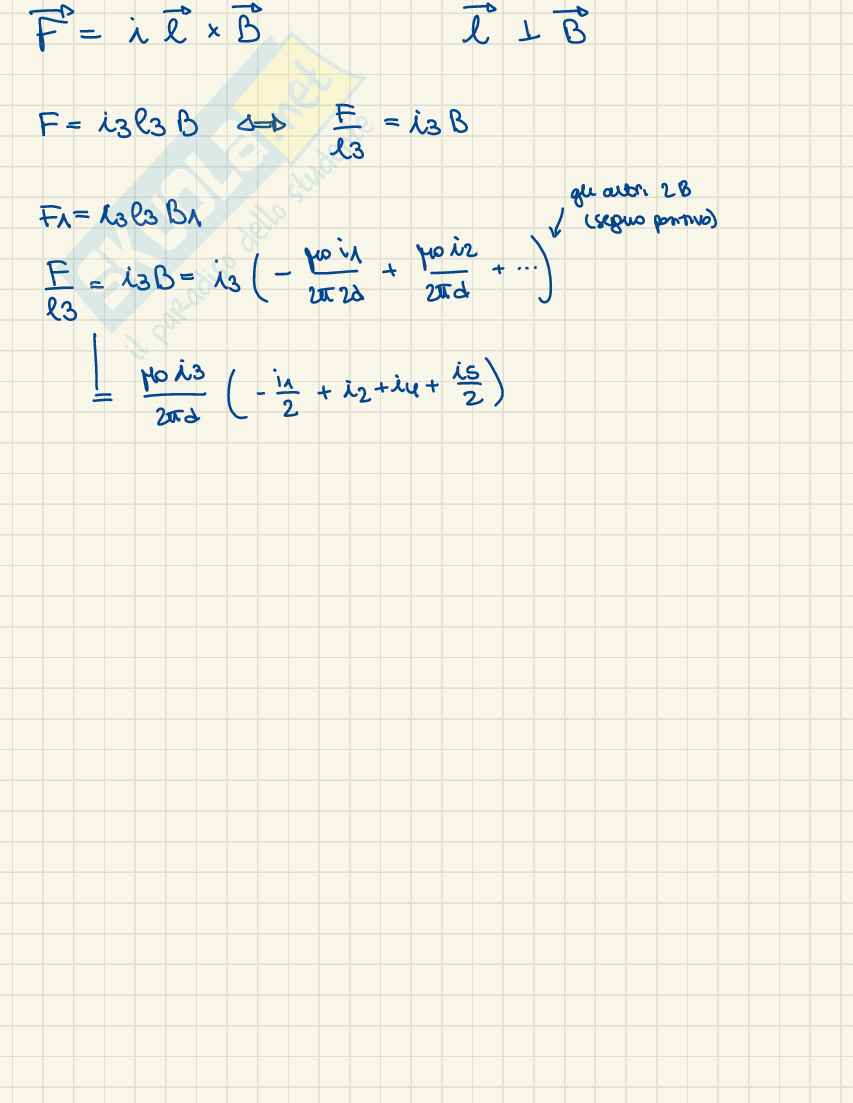 F = i l × B l ⊥ B
F = i3 l3 B ⟺ F/l3 = i3 B
gli altri 2 B
(segno positivo)
F1 = i3 l3 B1
F/l3 = i3 B = i3 ( - μ0 i1/2π 2d + μ0 i2/2πd + ... )
= μ0 i3/2πd ( - i1/2 + i2 + i4 + i5/2 )
SKUOLA.net
il paradiso dello studente